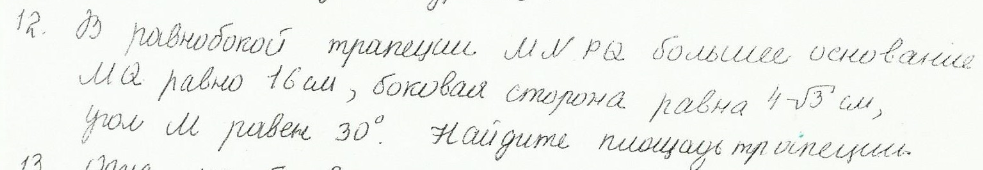 12. В равнобокой трапеции MNPQ большее основание
MQ равно 16 см, боковая сторона равна 4√3 см,
угол M равен 30°. Найдите площадь трапеции.
13.